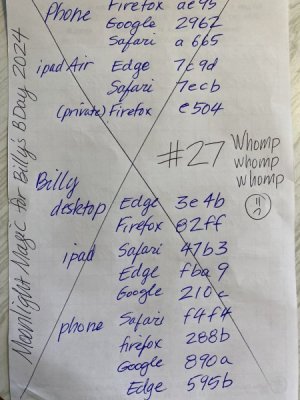 Phone Firefox ae95
Google 2967
Safari a665
ipad Air Edge 7c9d
Safari 7ecb
(private) Firefox e504
#27 Whomp
whomp
whomp
Billy
desktop Edge 3e4b
Firefox 82ff
ipad Safari 47b3
Edge fba9
Google 210c
phone Safari f4f4
firefox 288b
Google 890a
Edge 595b
Moonlight Magic for Billy's BDay 2024